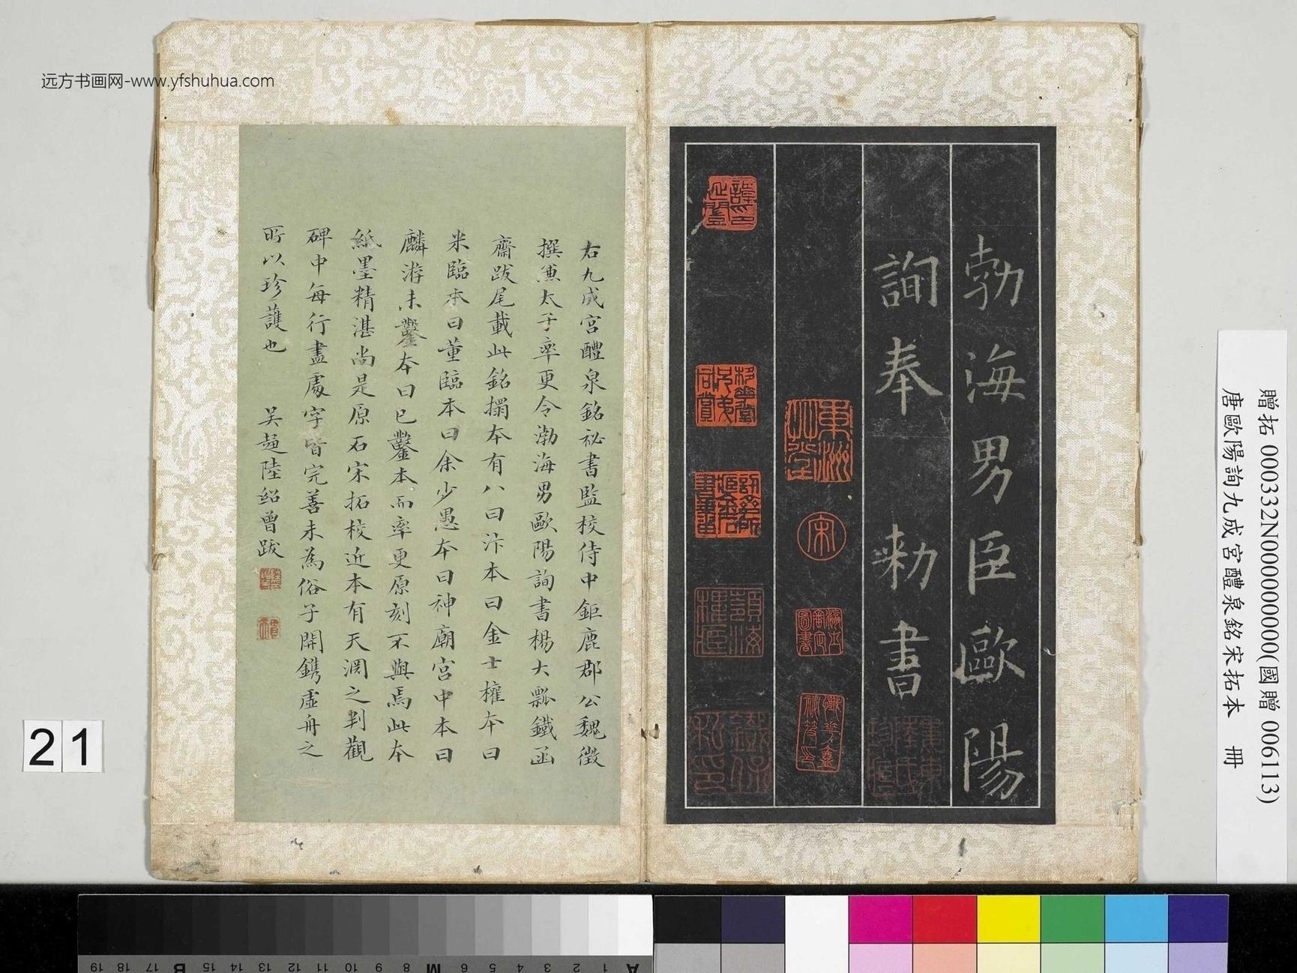 远方书画网-www.yfshuhua.com
勃海男臣歐陽
詢奉 勑書
右九成宮醴泉銘祕書監校侍中鉅鹿郡公魏徵
撰兼太子率更令渤海男歐陽詢書楊大瓢鐵函
齋跋尾載此銘搨本有八曰汴本曰金士權本曰
米臨本曰董臨本曰余少愚本曰神廟宮中本曰
麟游未鑿本曰已鑿本而率更原刻不與焉此本
紙墨精湛尚是原石宋拓校近本有天淵之判觀
碑中每行盡處字皆完善未為俗子開鐫虛舟之
所以珍護也 吳趨陸紹曾跋
贈拓 000332N000000000(國贈 006113)
唐歐陽詢九成宮醴泉銘宋拓本 冊
21
19 18 17 B 16 15 14 13 12 11 10 9 8 M 7 6 5 4 3 2 1 A